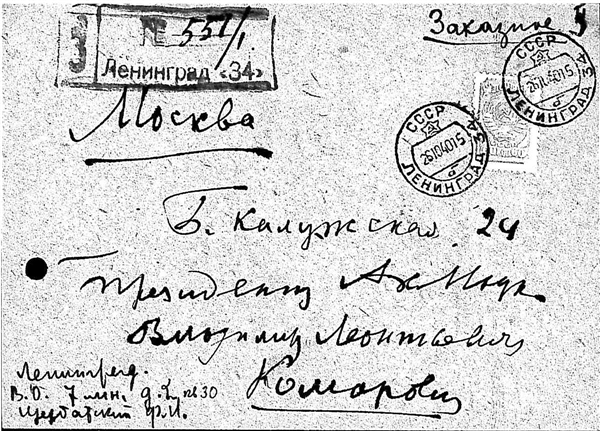 Заказное
З № 551/1
Ленинград «34»
СССР
26104015
ЛЕНИНГРАД 34
б
СССР
26104015
ЛЕНИНГРАД 34
б
Москва
Б. Калужская 24
Президенту Ак Наук
Владимир Леонтьевич
Комарову
Ленинград.
В.О. 7 лин. д. 2, № 30
Щербатский Ф.И.